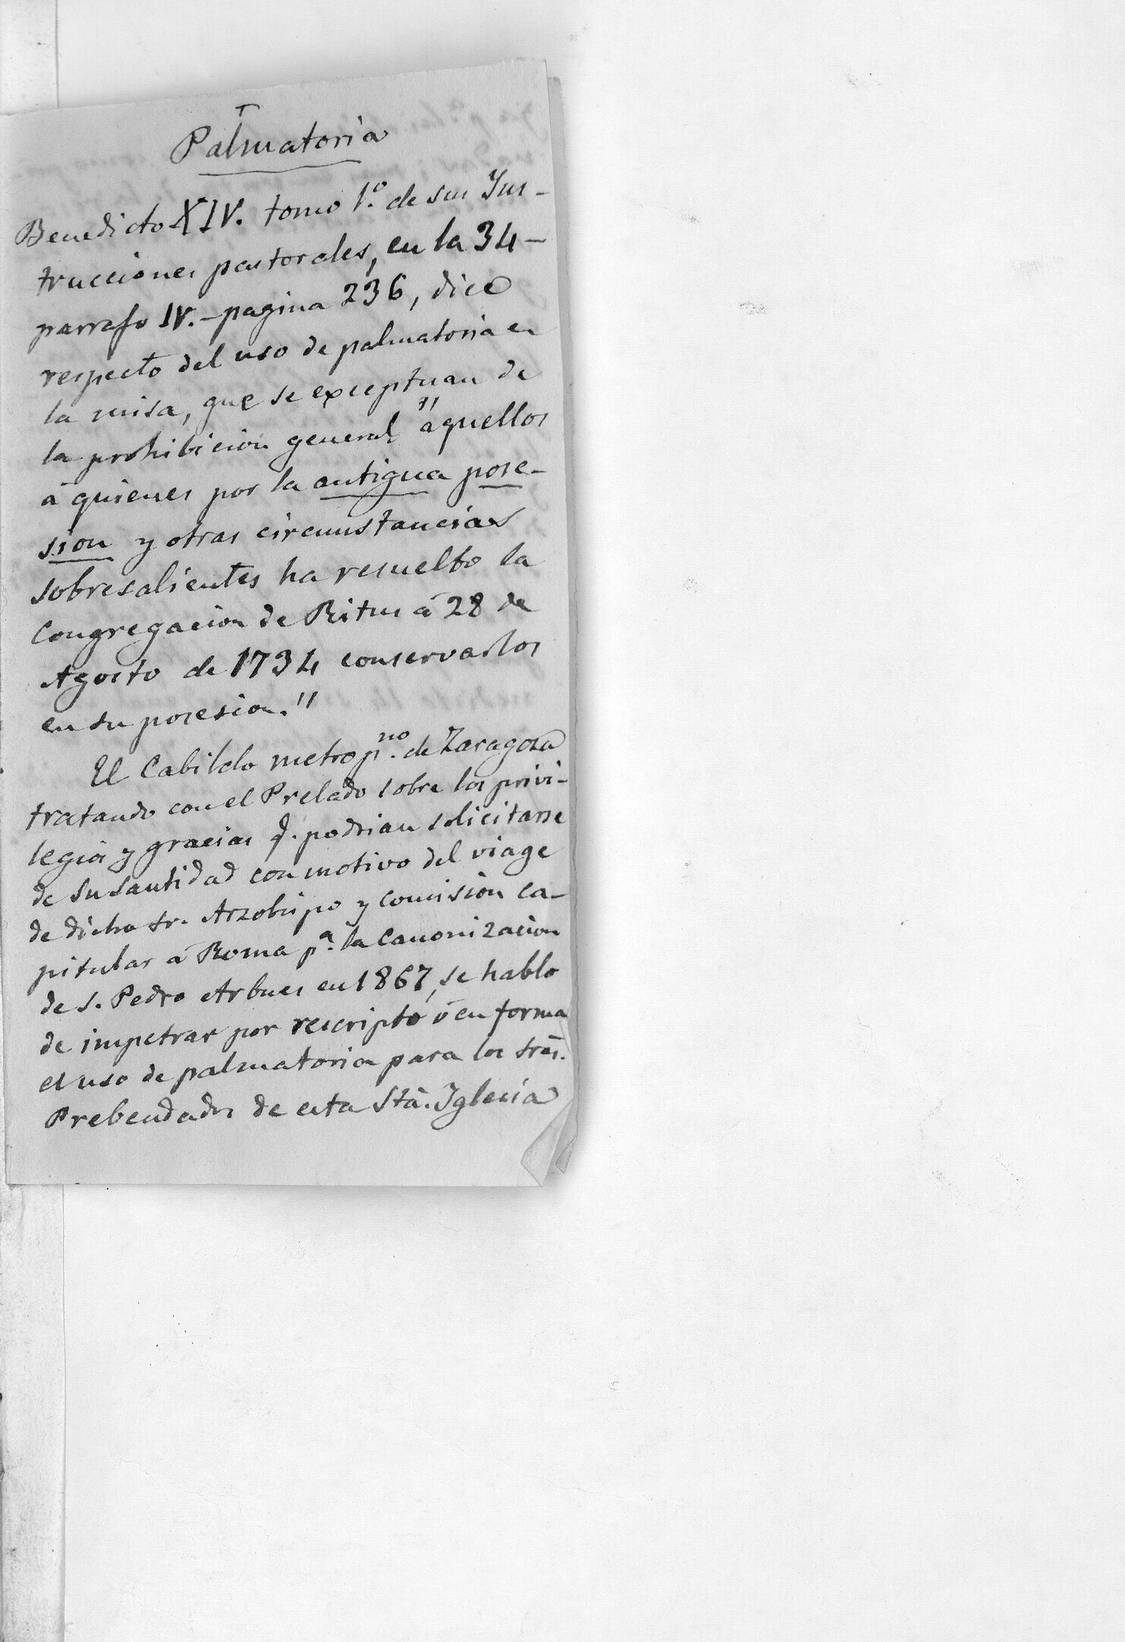 Palmatoria
Benedicto XIV. tomo 1.º de sus Ins-
trucciones pastorales, en la 34-
parrafo IV.-pagina 236, dice
respecto del uso de palmatoria en
la misa, que se exceptuan de
la prohibicion general "aquellos
á quienes por la antigua pose-
sion y otras circunstancias
sobresalientes ha resuelto la
Congregacion de Ritus á 28 de
Agosto de 1734 conservarlos
en su posesion."
El Cabildo metrop.no de Zaragoza
tratando con el Prelado sobre los privi-
legios y gracias q. podrian solicitarse
de Su Santidad con motivo del viage
de dicho Sr. Arzobispo y comision ca-
pitular á Roma p.a la Canonizacion
de S. Pedro Arbues en 1867, se hablo
de impetrar por rescripto ó en forma
el uso de palmatoria para los Sres.
Prebendados de esta Sta. Iglesia